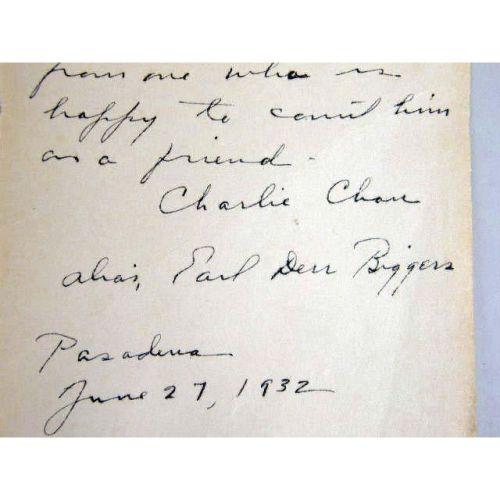 from one who is
happy to count him
as a friend -
Charlie Chan
alias, Earl Derr Biggers
Pasadena
June 27, 1932